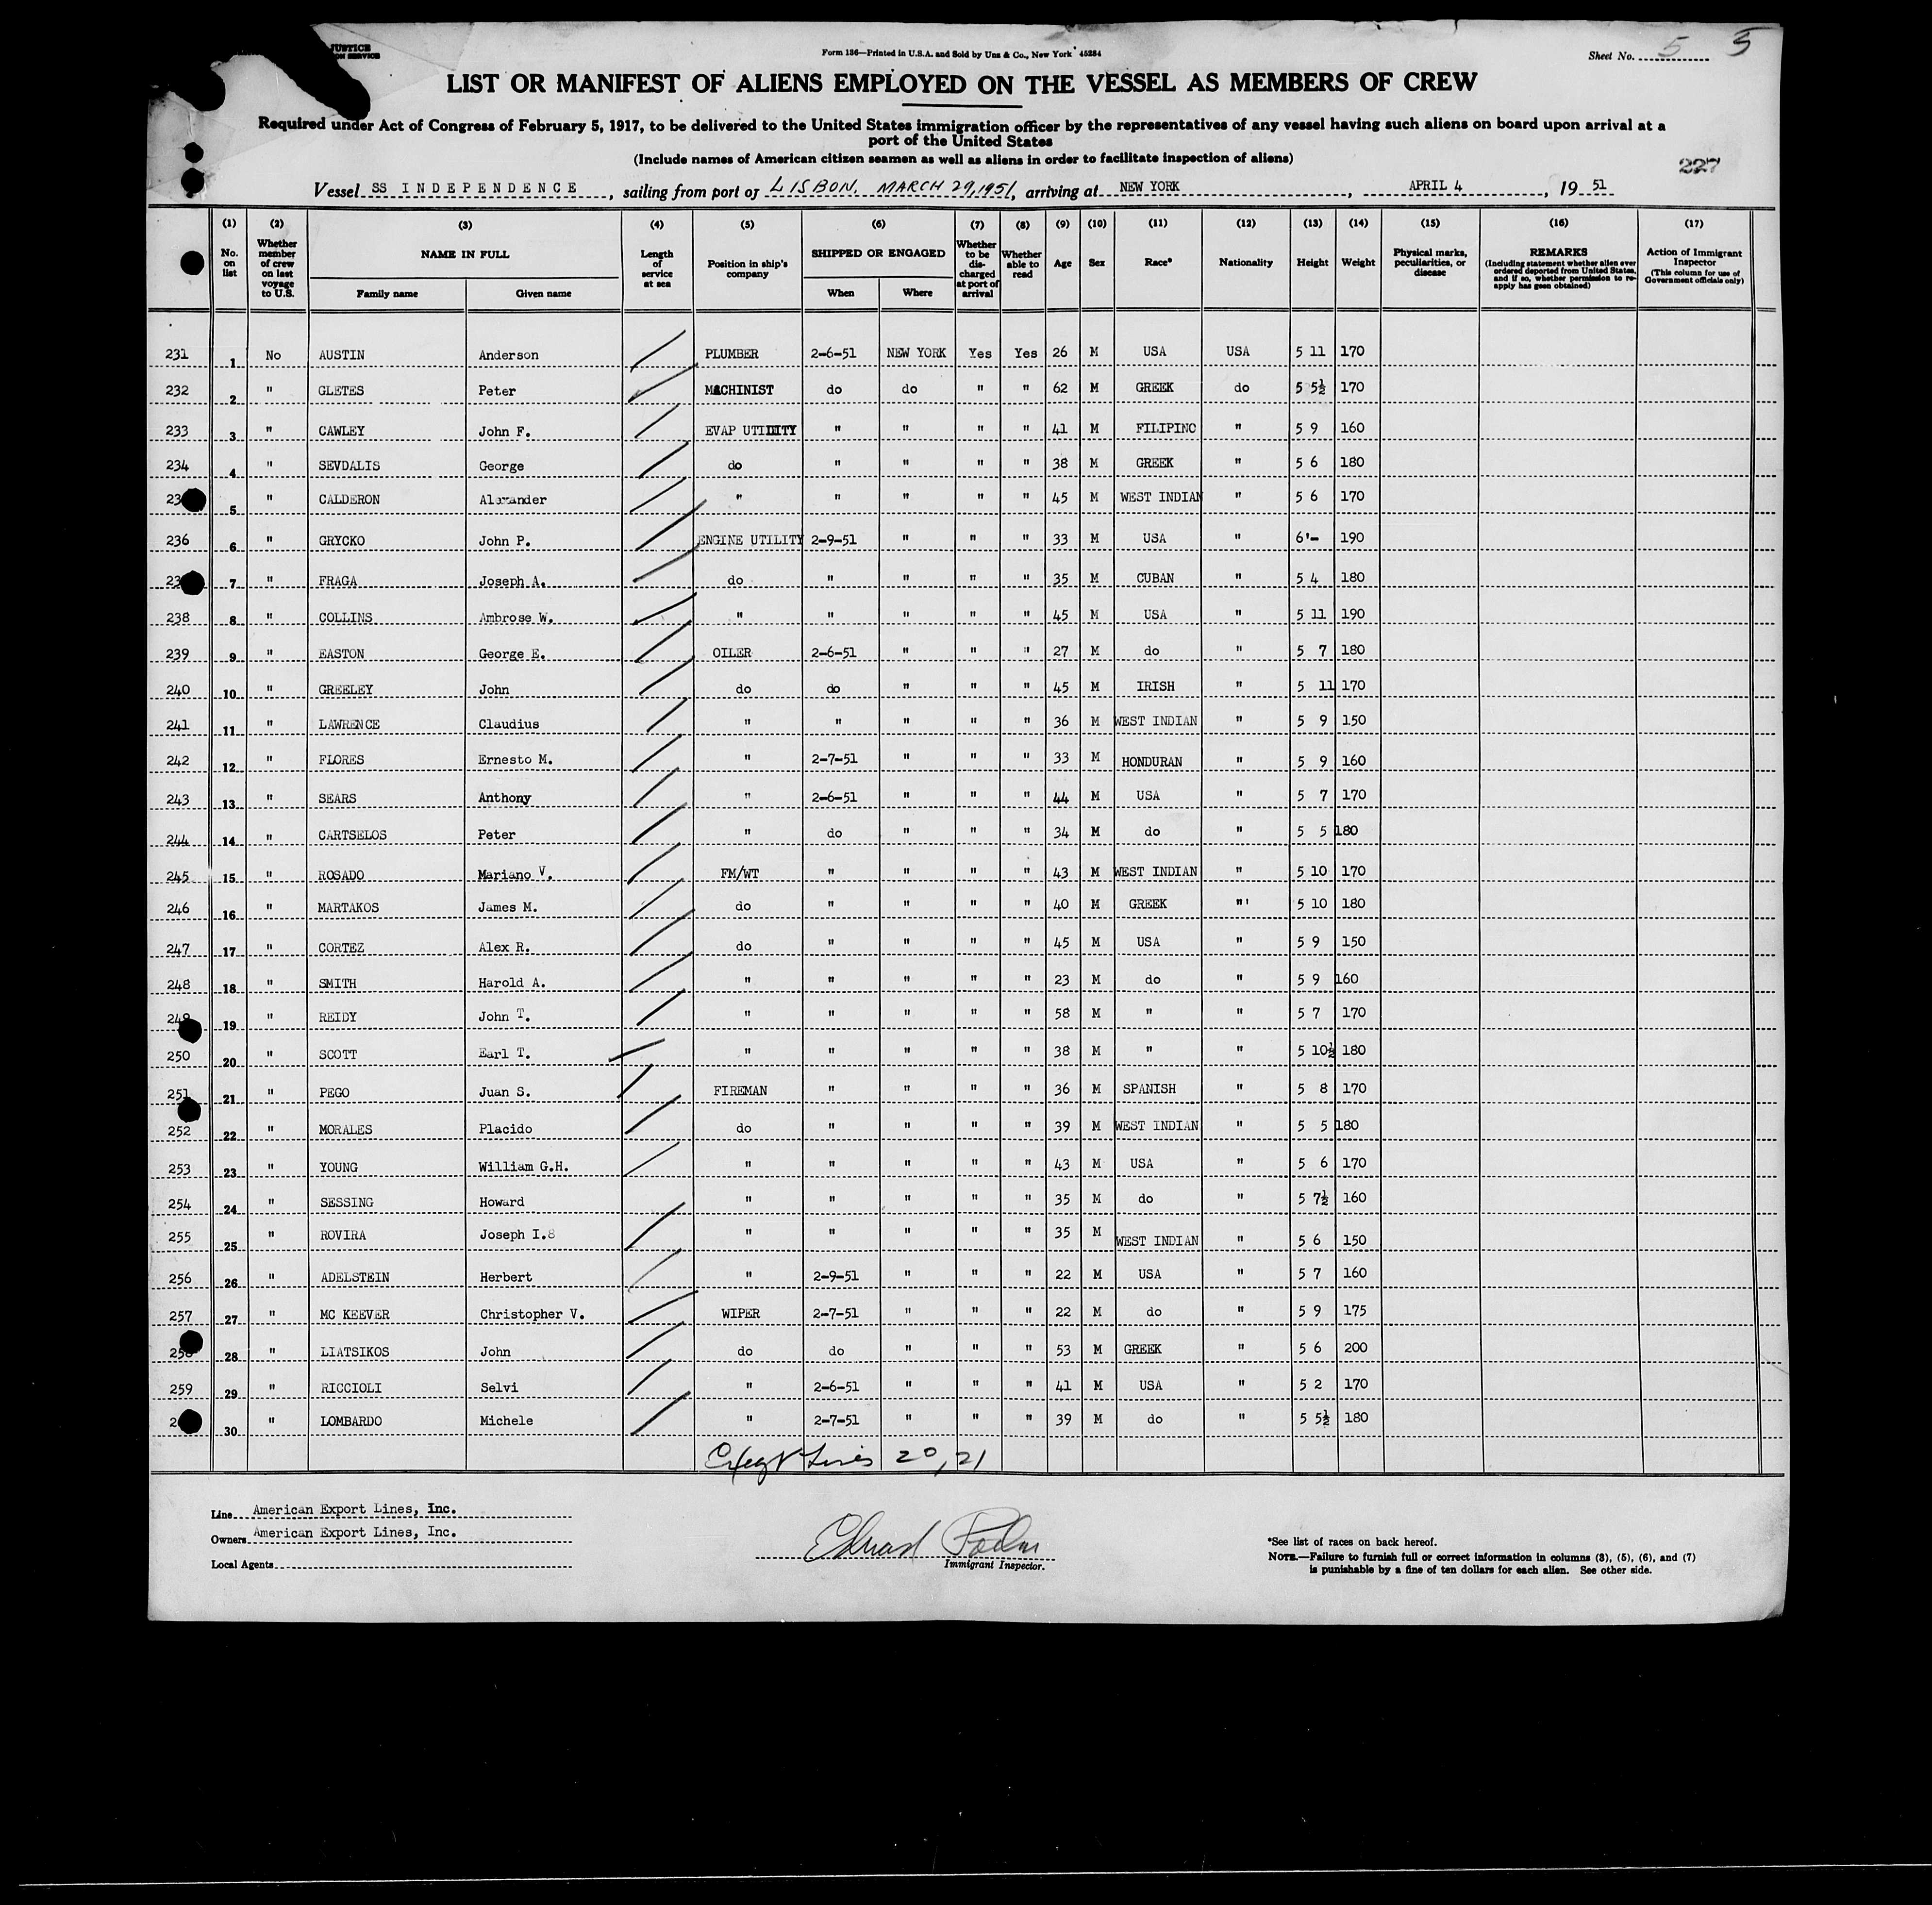 JUSTICE
Form 136—Printed in U.S.A. and Sold by Unz & Co., New York 45284
Sheet No. 5 5
LIST OR MANIFEST OF ALIENS EMPLOYED ON THE VESSEL AS MEMBERS OF CREW
Required under Act of Congress of February 5, 1917, to be delivered to the United States immigration officer by the representatives of any vessel having such aliens on board upon arrival at a
port of the United States
(Include names of American citizen seamen as well as aliens in order to facilitate inspection of aliens)
227
Vessel SS INDEPENDENCE, sailing from port of LISBON, MARCH 29, 1951, arriving at NEW YORK, APRIL 4, 19 51
(1) (2) (3) (4) (5) (6) (7) (8) (9) (10) (11) (12) (13) (14) (15) (16) (17)
No. on list Whether member of crew on last voyage to U.S. NAME IN FULL Family name Given name Length of service at sea Position in ship's company SHIPPED OR ENGAGED When Where Whether to be discharged at port of arrival Whether able to read Age Sex Race* Nationality Height Weight Physical marks, peculiarities, or disease REMARKS (Including statement whether alien ever ordered deported from United States, and if so, whether permission to reapply has been obtained) Action of Immigrant Inspector (This column for use of Government officials only)
231 1 No AUSTIN Anderson PLUMBER 2-6-51 NEW YORK Yes Yes 26 M USA USA 5 11 170
232 2 " GLETES Peter MACHINIST do do " " 62 M GREEK do 5 5½ 170
233 3 " CAWLEY John F. EVAP UTILITY " " " " 41 M FILIPINO " 5 9 160
234 4 " SEVDALIS George do " " " " 38 M GREEK " 5 6 180
23 5 " CALDERON Alexander " " " " " 45 M WEST INDIAN " 5 6 170
236 6 " GRYCKO John P. ENGINE UTILITY 2-9-51 " " " 33 M USA " 6'- 190
23 7 " FRAGA Joseph A. do " " " " 35 M CUBAN " 5 4 180
238 8 " COLLINS Ambrose W. " " " " " 45 M USA " 5 11 190
239 9 " EASTON George E. OILER 2-6-51 " " " 27 M do " 5 7 180
240 10 " GREELEY John do do " " " 45 M IRISH " 5 11 170
241 11 " LAWRENCE Claudius " " " " " 36 M WEST INDIAN " 5 9 150
242 12 " FLORES Ernesto M. " 2-7-51 " " " 33 M HONDURAN " 5 9 160
243 13 " SEARS Anthony " 2-6-51 " " " 44 M USA " 5 7 170
244 14 " CARTSELOS Peter " do " " " 34 M do " 5 5 180
245 15 " ROSADO Mariano V. FM/WT " " " " 43 M WEST INDIAN " 5 10 170
246 16 " MARTAKOS James M. do " " " " 40 M GREEK "' 5 10 180
247 17 " CORTEZ Alex R. do " " " " 45 M USA " 5 9 150
248 18 " SMITH Harold A. " " " " " 23 M do " 5 9 160
249 19 " REIDY John T. " " " " " 58 M " " 5 7 170
250 20 " SCOTT Earl T. " " " " " 38 M " " 5 10½ 180
251 21 " PEGO Juan S. FIREMAN " " " " 36 M SPANISH " 5 8 170
252 22 " MORALES Placido do " " " " 39 M WEST INDIAN " 5 5 180
253 23 " YOUNG William G.H. " " " " " 43 M USA " 5 6 170
254 24 " SESSING Howard " " " " " 35 M do " 5 7½ 160
255 25 " ROVIRA Joseph I.S " " " " " 35 M WEST INDIAN " 5 6 150
256 26 " ADELSTEIN Herbert " 2-9-51 " " " 22 M USA " 5 7 160
257 27 " MC KEEVER Christopher V. WIPER 2-7-51 " " " 22 M do " 5 9 175
258 28 " LIATSIKOS John do do " " " 53 M GREEK " 5 6 200
259 29 " RICCIOLI Selvi " 2-6-51 " " " 41 M USA " 5 2 170
2 30 " LOMBARDO Michele " 2-7-51 " " " 39 M do " 5 5½ 180
Except Lines 20, 21
Line American Export Lines, Inc.
Owners American Export Lines, Inc.
Local Agents
Immigrant Inspector.
*See list of races on back hereof.
NOTE.—Failure to furnish full or correct information in columns (3), (5), (6), and (7)
is punishable by a fine of ten dollars for each alien. See other side.